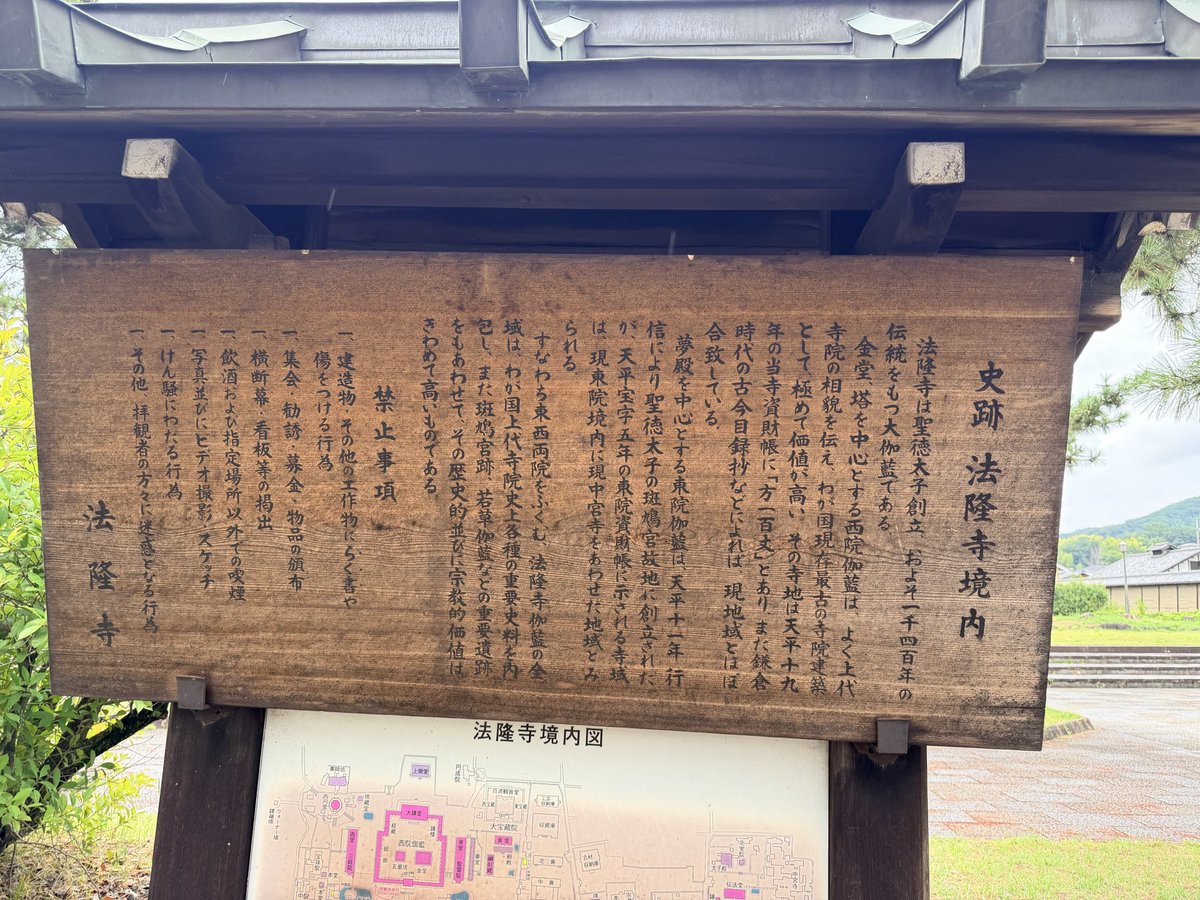 史跡 法隆寺境内
法隆寺は聖徳太子創立 およそ一千四百年の
伝統をもつ大伽藍である
金堂、塔を中心とする西院伽藍は よく上代
寺院の相貌を伝え わが国現存最古の寺院建築
として、極めて価値が高い その寺地は天平十九
年の当寺資財帳に「方一百丈」とあり また鎌倉
時代の古今目録抄などによれば 現地域とほぼ
合致している。
夢殿を中心とする東院伽藍は、天平十一年 行
信により聖徳太子の斑鳩宮故地に創立された
が、天平宝字五年の東院資財帳に示される寺域
は、現東院境内に現中宮寺をあわせた地域とみ
られる
すなわち東西両院をふくむ 法隆寺伽藍の全
域は、わが国上代寺院史上各種の重要史料を内
包し、また斑鳩宮跡、若草伽藍などの重要遺跡
をもあわせて、その歴史的並びに宗教的価値は
きわめて高いものである
禁止事項
一、建造物・その他の工作物にらく書や
傷をつける行為
一、集会・勧誘・募金・物品の頒布
一、横断幕・看板等の掲出
一、飲酒および指定場所以外での喫煙
一、写真並びにビデオ撮影・スケッチ
一、けん騒にわたる行為
一、その他 拝観者の方々に迷惑となる行為
法隆寺
法隆寺境内図
薬師坊
上御堂
西円堂
地蔵堂
大講堂
経蔵
鐘楼
西院伽藍
廻廊
五重塔
金堂
中門
西室
三経院
東室
聖霊院
妻室
綱封蔵
食堂
細殿
百済観音堂
西宝蔵
東宝蔵
大宝蔵院
収蔵庫
北倉
中倉
古材収納庫
宝珠院
本堂
北室院
太子殿
本堂
伝法堂
中宮寺